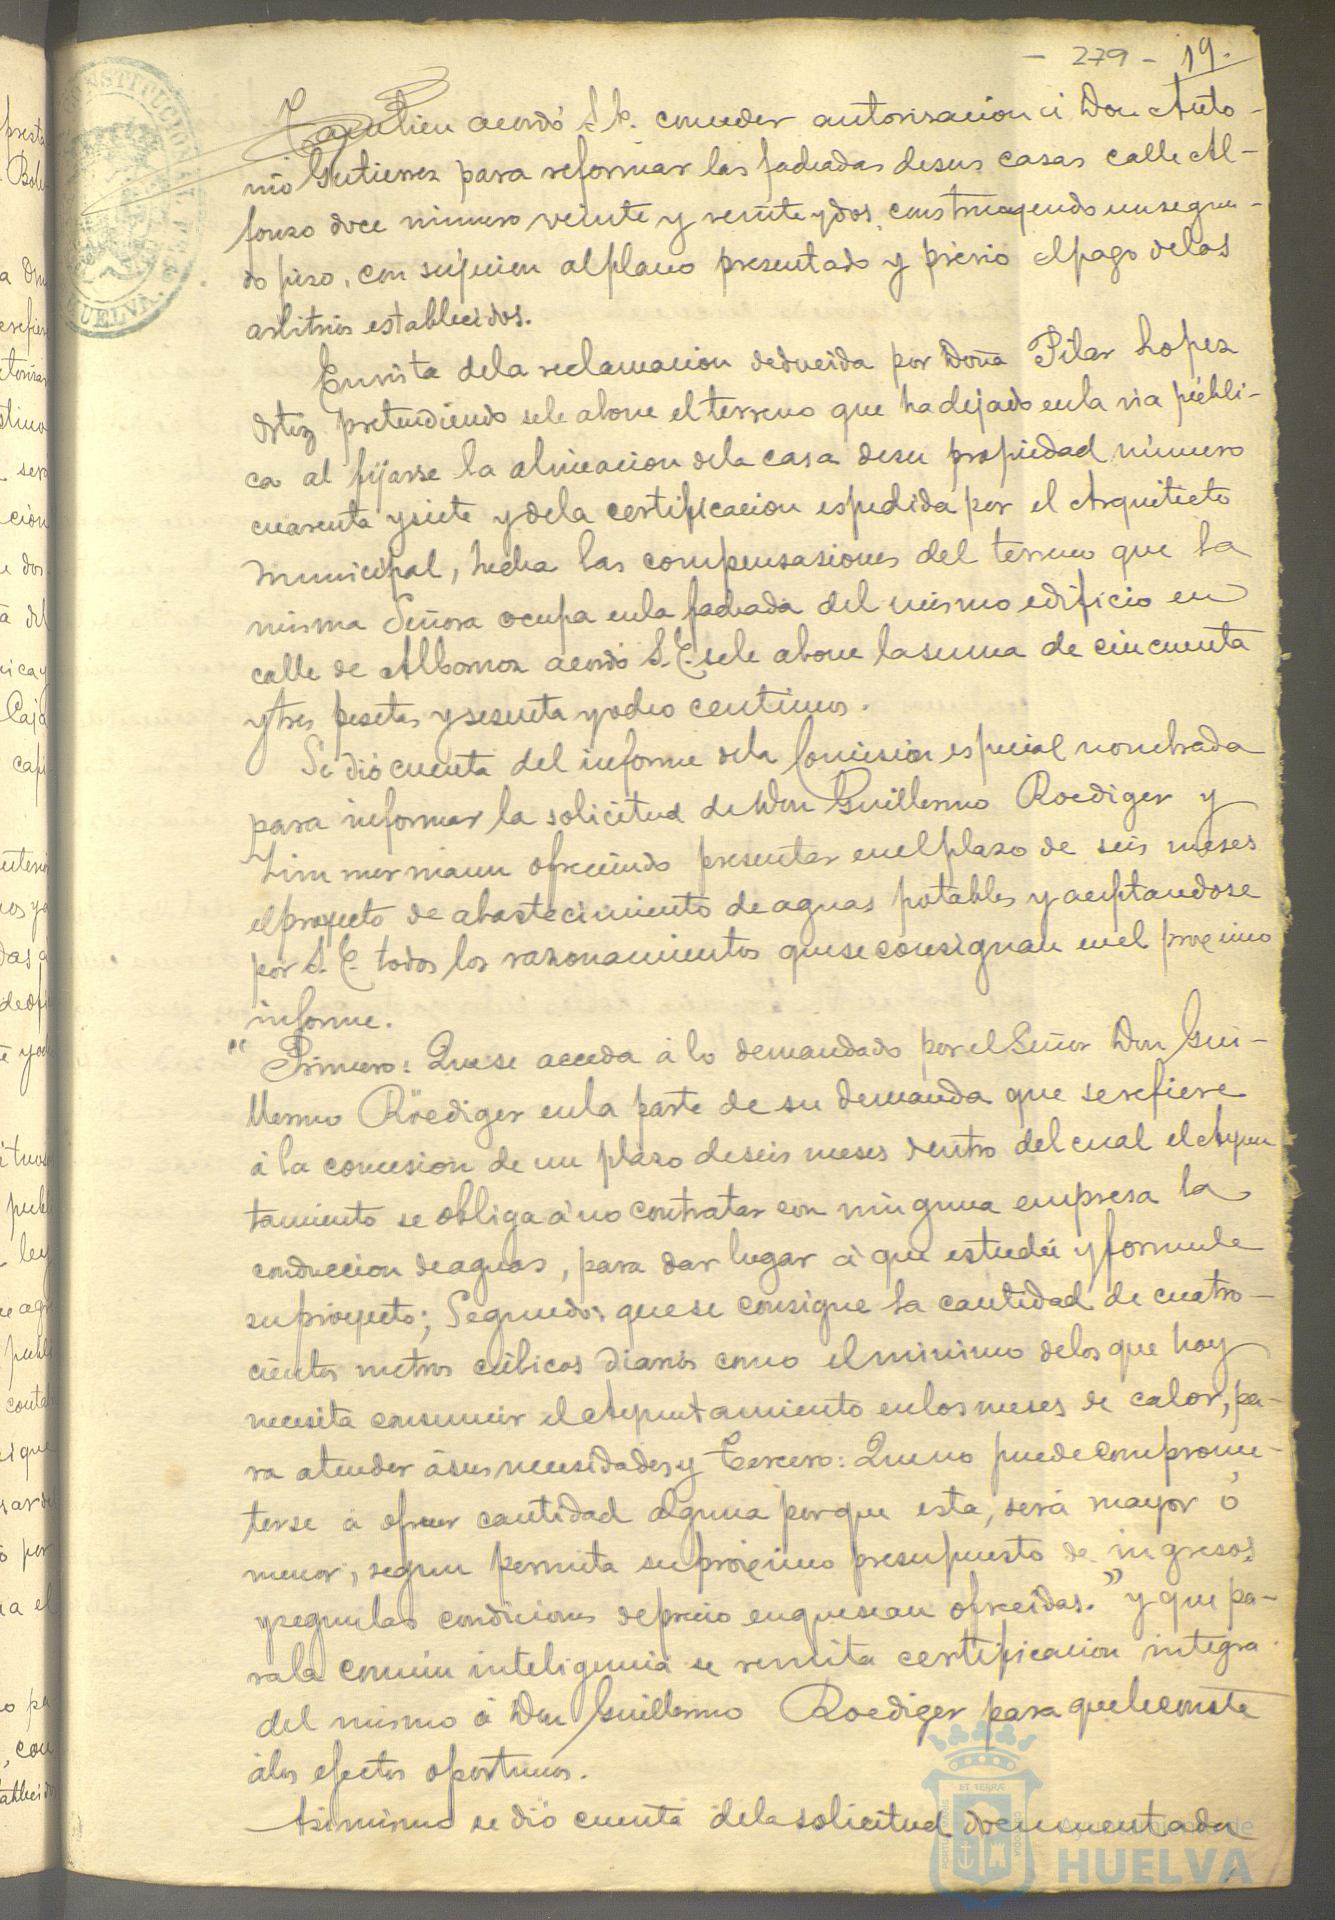 - 279 - 19.
Tambien acordó S. E. conceder autorizacion á Don Anto-
nio Gutierrez para reformar las fachadas de sus casas calle Al-
fonso doce número veinte y veinte y dos, construyendo un segun-
do piso, con sujecion al plano presentado y prévio el pago de los
arbitrios establecidos.
En vista de la reclamacion deducida por Doña Pilar Lopez
Ortiz pretendiendo se le abone el terreno que ha dejado en la via públi-
ca al fijarse la alineacion de la casa de su propiedad número
cuarenta y siete y de la certificacion espedida por el Arquitecto
Municipal, hecha las compensasiones del terreno que la
misma Señora ocupa en la fachada del mismo edificio en
calle de Albornoz acordó S. E. se le abone la suma de cincuenta
y tres pesetas y sesenta y ocho centimos.
Se dió cuenta del informe de la Comision especial nombrada
para informar la solicitud de Don Guillermo Roediger y
Zimmermann ofreciendo presentar en el plazo de seis meses
el proyecto de abastecimiento de aguas potables y aceptandose
por S. E. todos los razonamientos que se consignan en el proximo
informe.
" Primero: Que se acceda á lo demandado por el Señor Don Gui-
llermo Röediger en la parte de su demanda que se refiere
á la concesion de un plazo de seis meses dentro del cual el Ayun
tamiento se obliga á no contratar con ninguna empresa la
conduccion de aguas, para dar lugar á que estudie y formule
su proyecto; Segundo: que se consigne la cantidad de cuatro-
cientos metros cúbicos diarios como el minimo de los que hoy
necesita consumir el Ayuntamiento en los meses de calor, pa-
ra atender á sus necesidades y Tercero: Que no puede comprome-
terse á ofrecer cantidad alguna porque esta, será mayor ó
menor, segun permita su proximo presupuesto de ingresos
y segun las condiciones de precio en que sean ofrecidas." y que pa-
ra la comun inteligencia se remita certificacion integra
del mismo á Don Guillermo Roediger para que le conste
á los efectos oportunos.
Asimismo se dió cuenta de la solicitud documentada de
HUELVA
Ayuntamiento de
HUELVA